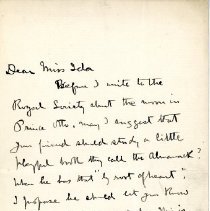 Dear Miss Ida
Before I write to the
Royal Society about the moon in
Prince Otto, may I suggest that
your friend should study a little
playful book they call the Almanack?
When he has that "by root of heart",
I propose he should let you know